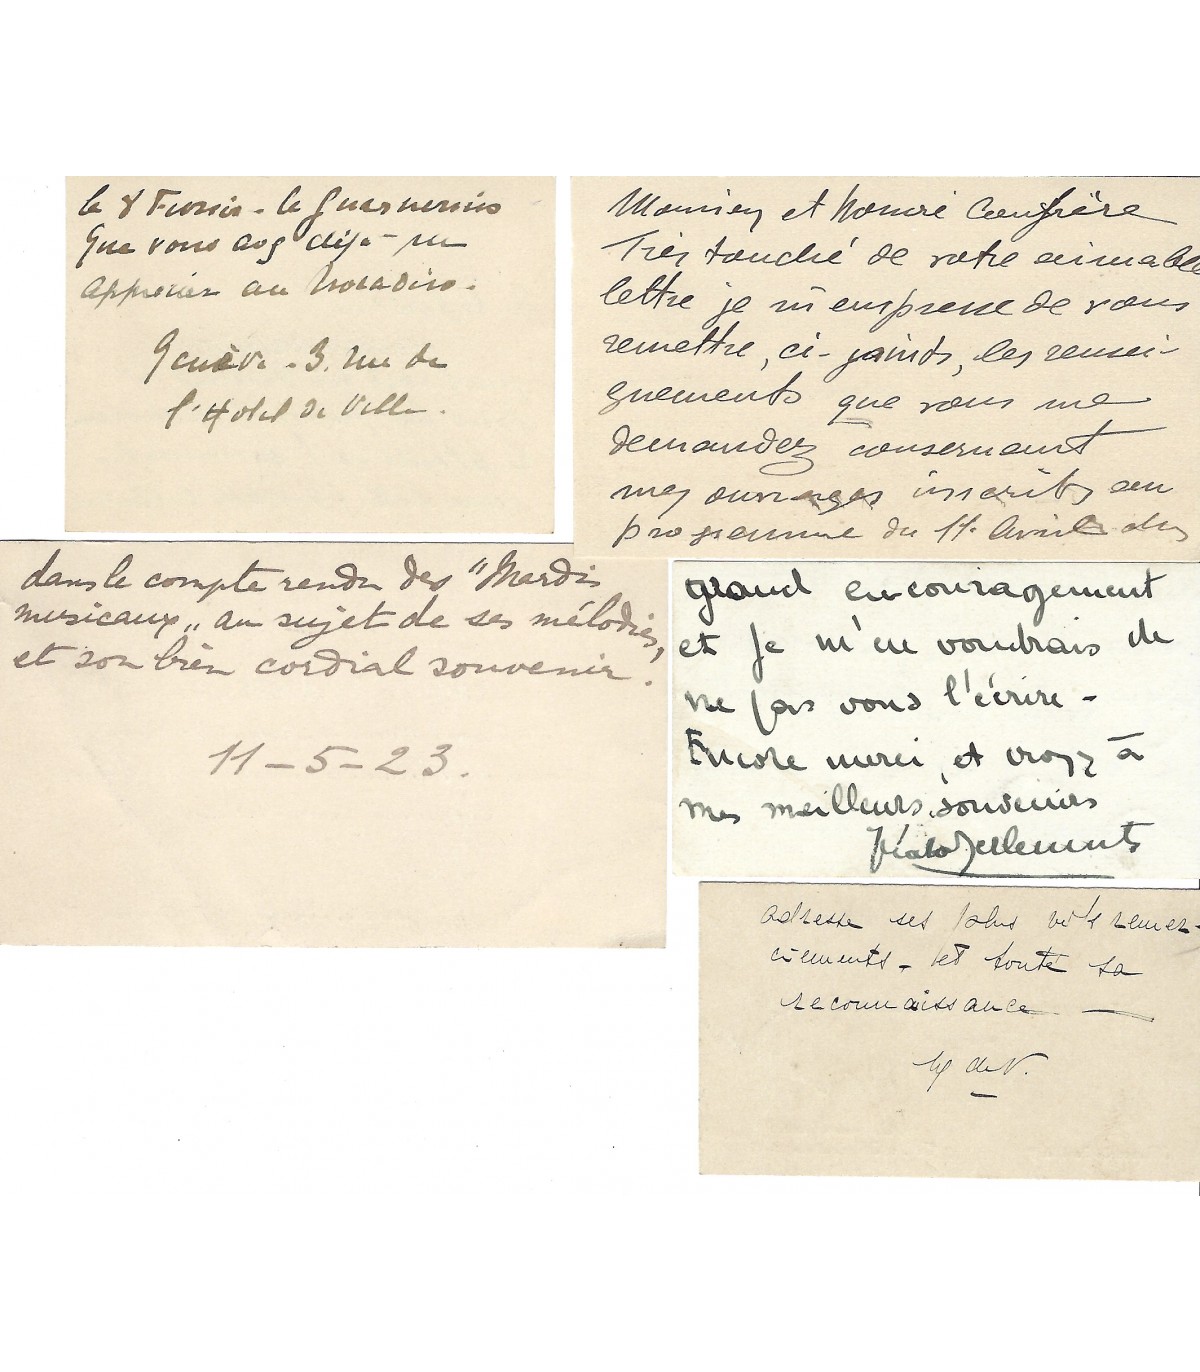 le 8 Février - le Guarnerius
que vous avez déjà pu
apprécier au Trocadéro.
Genève - 3. rue de
l'Hotel de Ville.
Monsieur et honoré Confrère
Très touché de votre aimable
lettre je m'empresse de vous
remettre, ci-joints, les rensei-
gnements que vous me
demandez consernant
mes ouvrages inscrits au
programme du 11 Avril
dans le compte rendu des "Mardis
musicaux" au sujet de ses mélodies,
et son bien cordial souvenir.
11-5-23.
grand encouragement
et je m'en voudrais de
ne pas vous l'écrire -
Encore merci, et croyez à
mes meilleurs souvenirs
adresse ses plus vifs remer-
ciements - et toute sa
reconnaissance
de V.